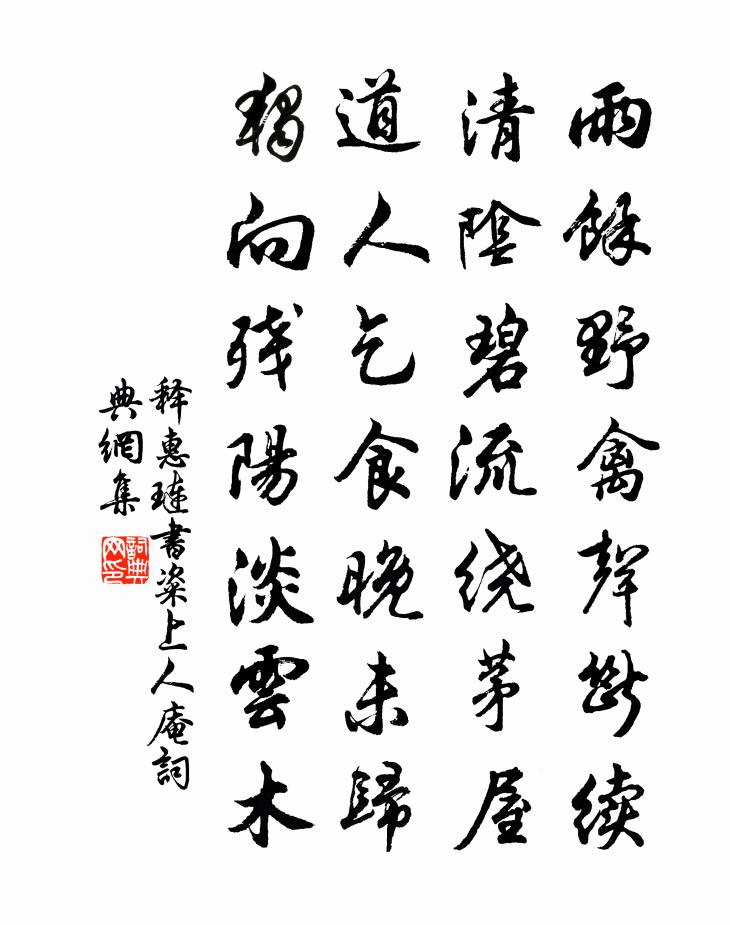 雨餘野禽聲斷續
清陰碧流绕茅屋
道人乞食晚未歸
獨向残陽淡雲木
释惠璉書粢上人庵詞
典網集
詞典网印